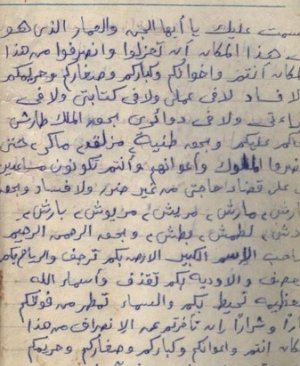 سمت عليك يا أيها الجن والعمار الذي هو
هذا المكان أن تعزلوا وانصرفوا من هذا
كان أنتم واخوانكم وكباركم وصغاركم وحريمكم
لافساد لافى عملى ولافى كتابتى ولافى
ولافى دوائرى بحق الملك طارش
كم عليكم وبحق
الملوك وأعوانهم وأنتم تكونون مساعدين
على قضاء حاجتى من غير ضرر ولافساد وبحق
مارش
لطمش بطش وبحق الرحمن الرحيم
احب الإسم الكبير الارض بكم ترجف والرياح بكم
عصف والأودية بكم تقذف وأسماء الله
عظيمة تحيط بكم والسماء تمطر من فوقكم
اراً وشراراً إن تأخرتم عن الانصراف من هذا
كان انتم واعوانكم وكباركم وصغاركم وحريمكم